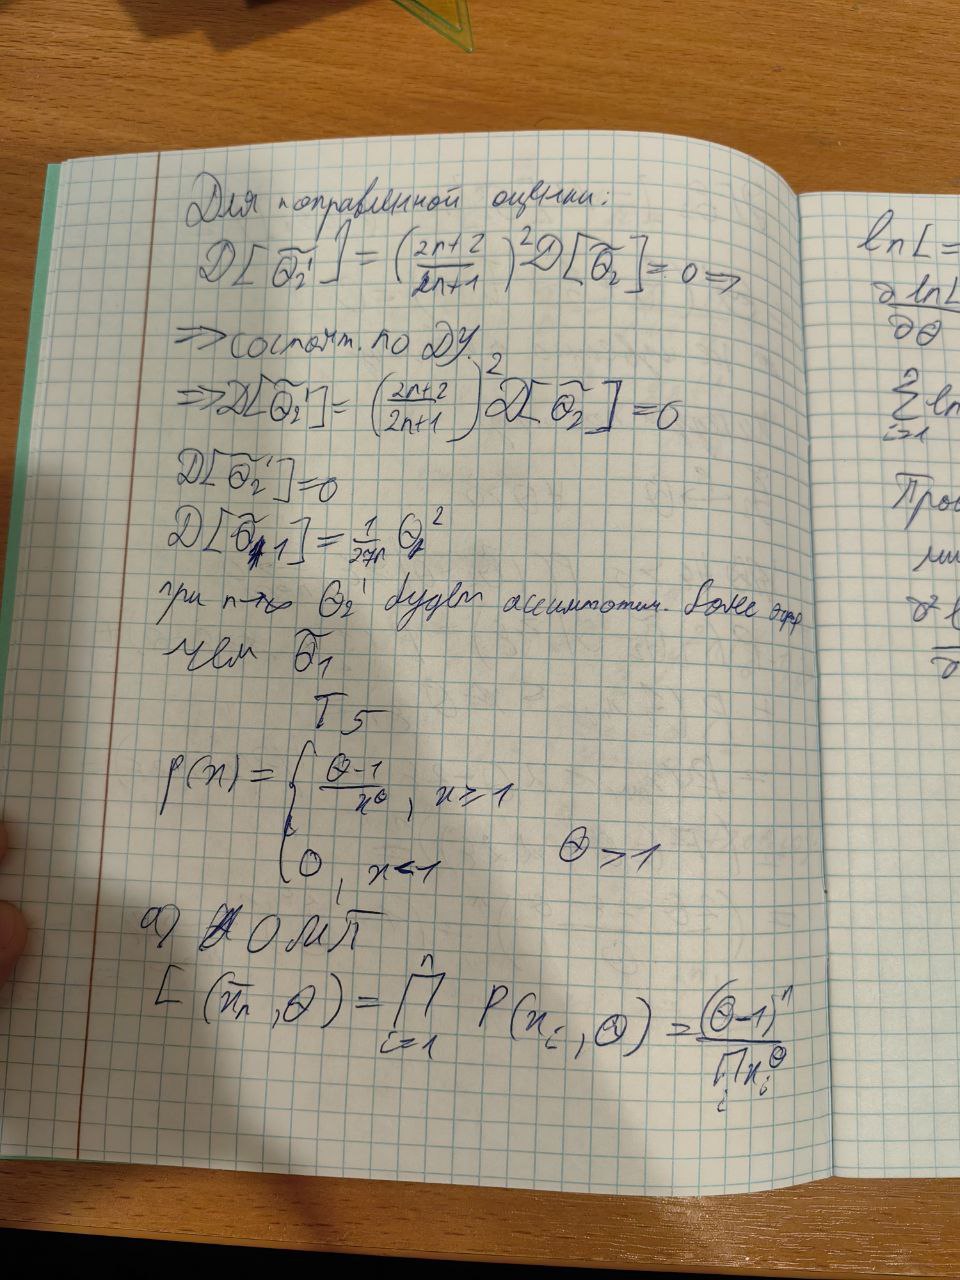 Для поправленной оценки:
D[θ̃₂'] = (2n+2/2n+1)² D[θ̃₂] = 0 ⇒
⇒ состоят. по ДУ.
⇒ D[θ̃₂'] = (2n+2/2n+1)² D[θ̃₂] = 0
D[θ̃₂'] = 0
D[θ̃₁] = 1/27n θ²
при n→∞ θ₂' будет ассимптотич. более эфф
чем θ̃₁
T5
p(x) = { θ-1/x^θ, x ≥ 1
0, x < 1 θ > 1
a) ОМП
L(x̄ₙ, θ) = ∏ᵢ₌₁ⁿ P(xᵢ, θ) = (θ-1)ⁿ/∏ᵢ xᵢ^θ
ln L =
∂ ln L
∂θ
Σ ln
i=1
∂²